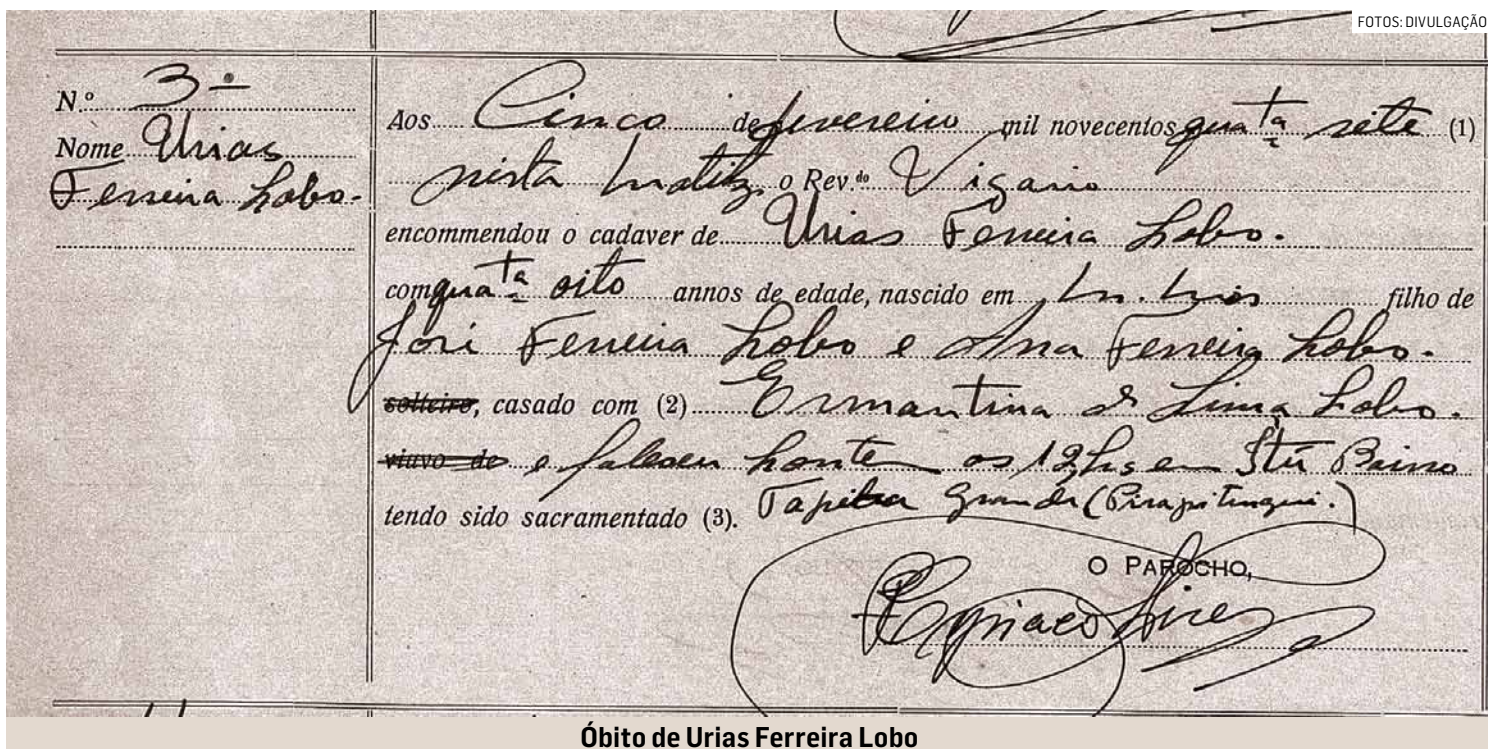 FOTOS: DIVULGAÇÃO
N.º 3-
Nome Urias
Ferreira Lobo.
Aos Cinco de fevereiro mil novecentos quata sete (1)
nesta Matriz, o Rev.do Vigario
encommendou o cadaver de Urias Ferreira Lobo.
com quata oito annos de edade, nascido em filho de
José Ferreira Lobo e Ana Ferreira Lobo.
solteiro, casado com (2) Ermantina de Lima Lobo.
viuvo de e faleceu hontem as 12 hs em Itú Bairro
tendo sido sacramentado (3). Grande (Pirapitingui.)
O PAROCHO,
Óbito de Urias Ferreira Lobo